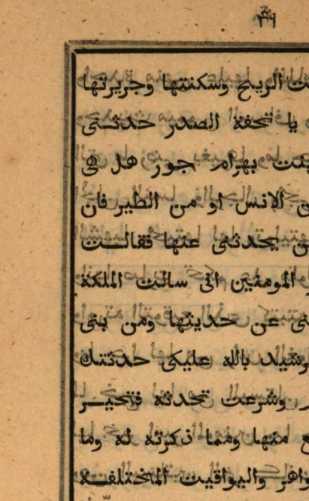 ت الريح وسكنتها وجريرتها
يا تحفة الصدر حدثتى
بنت بهرام جور هل هى
الانس او من الطير فان
يحدثنى عنها فقالت
المومنين انى سالت الملكة
عن حديثها ومن بنى
بالله عليكى حدثتك
وشرعت تحدثه فتحير
منها ومما ذكرته له وما
واهر واليواقيت المختلفة